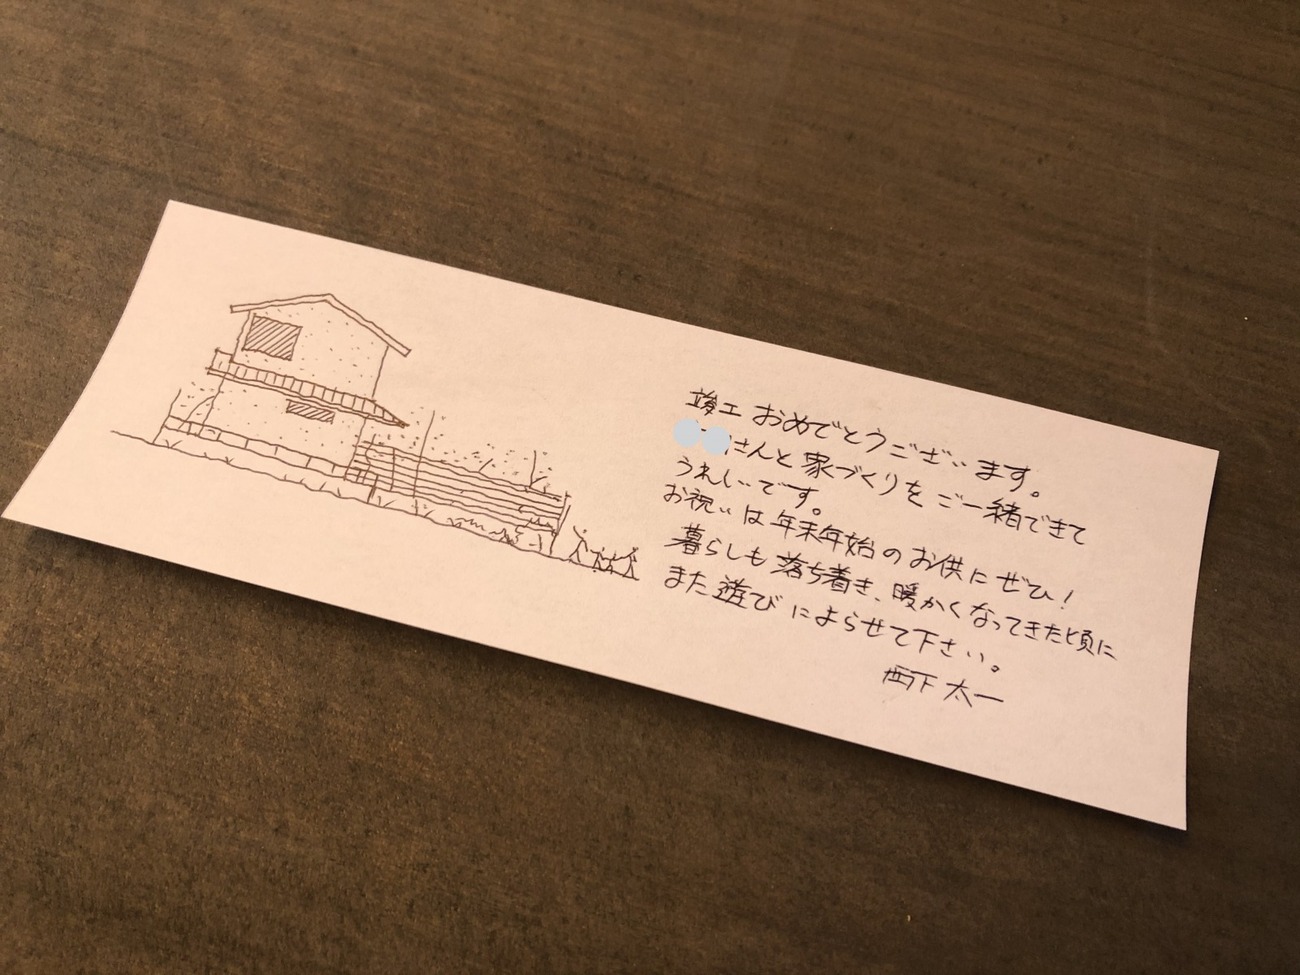 竣工 おめでとうございます。
さんと家づくりをご一緒できて
うれしいです。
お祝いは年末年始のお供にぜひ!
暮らしも落ち着き、暖かくなってきた頃に
また遊びによらせて下さい。
西下 太一